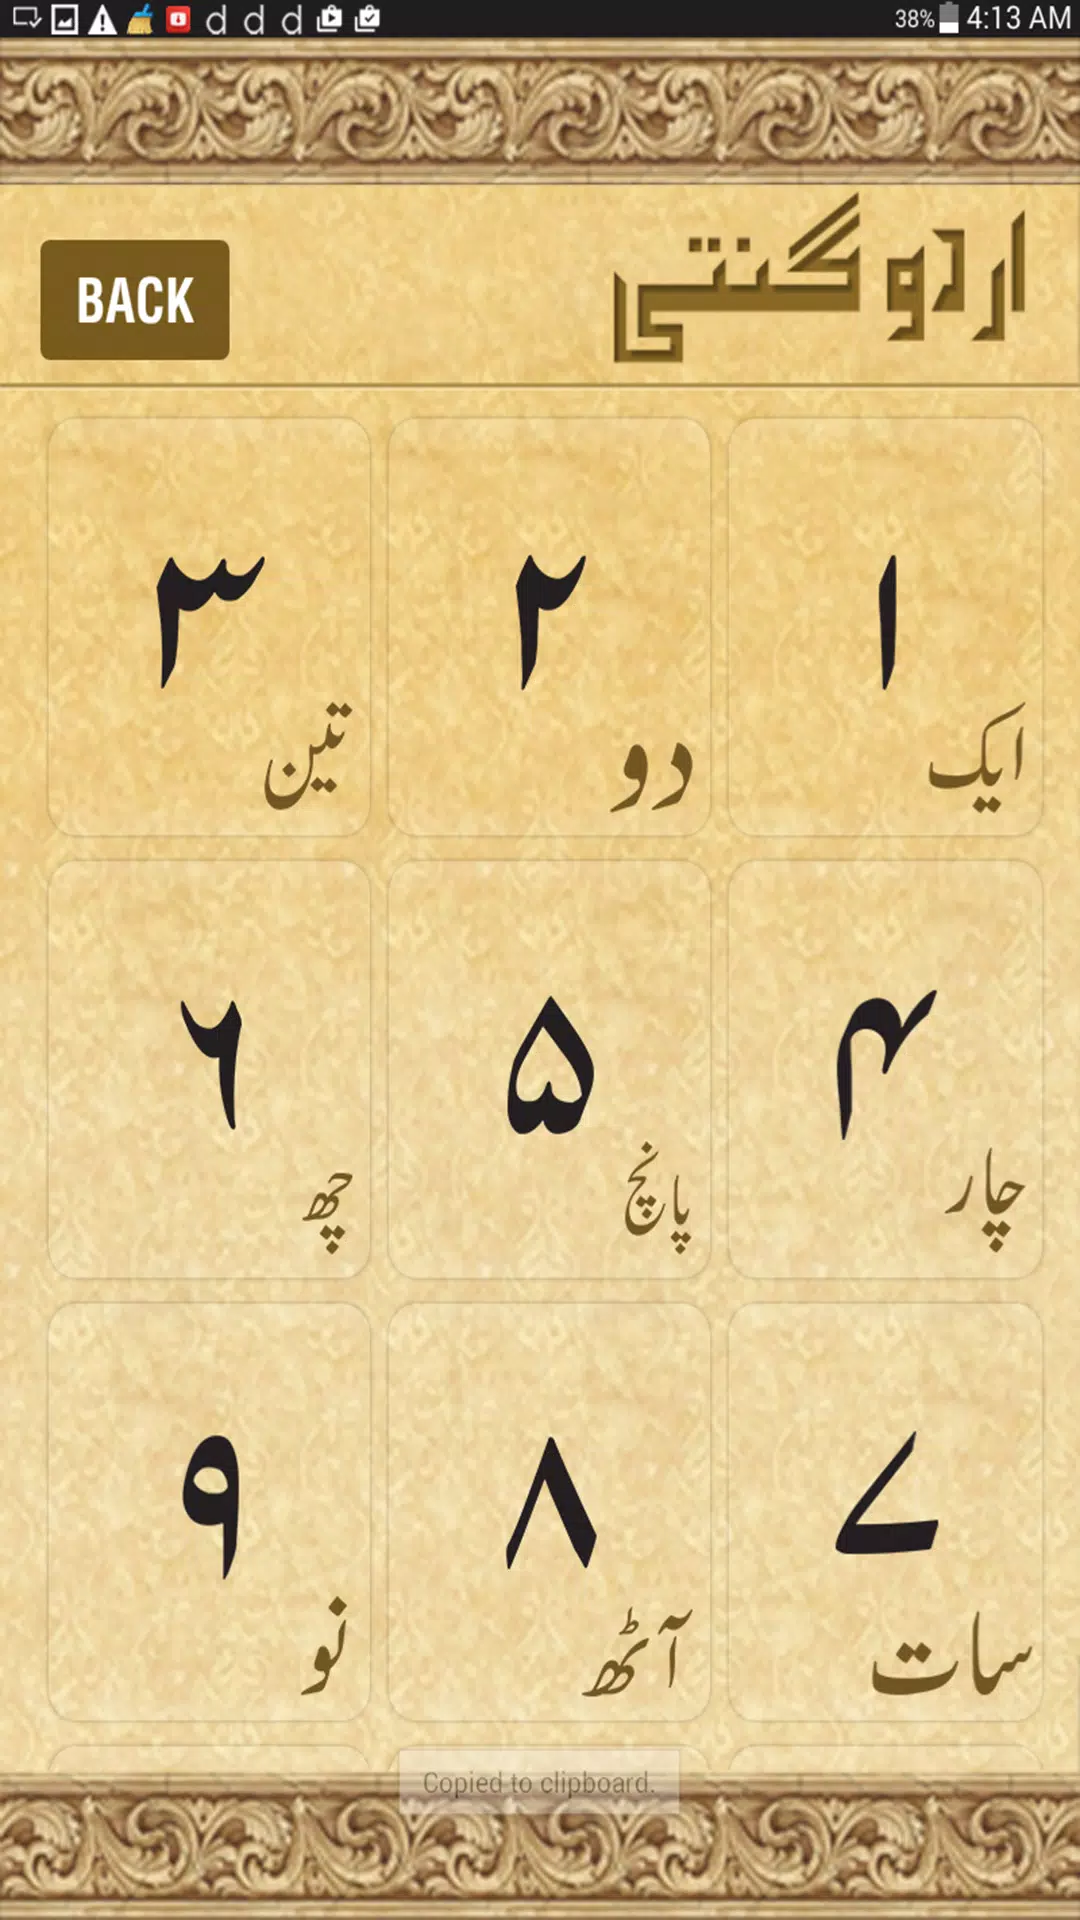 38% 4:13 AM
BACK
اردو گنتی
۱ ۲ ۳
ایک دو تین
۴ ۵ ۶
چار پانچ چھ
۷ ۸ ۹
سات آٹھ نو
Copied to clipboard.